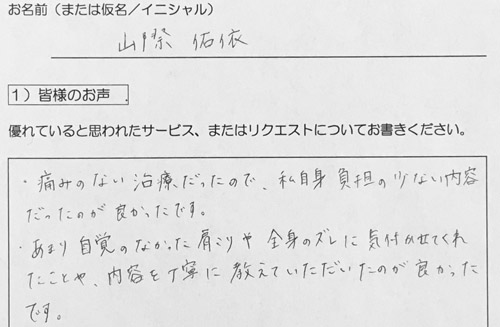 お名前（または仮名／イニシャル）
山際 佑依
1）皆様のお声
優れていると思われたサービス、またはリクエストについてお書きください。
・痛みのない治療だったので、私自身負担の少ない内容
だったのが良かったです。
・あまり自覚のなかった肩こりや全身のズレに気付かせてくれ
たことや、内容を丁寧に教えていただいたのが良かった
です。